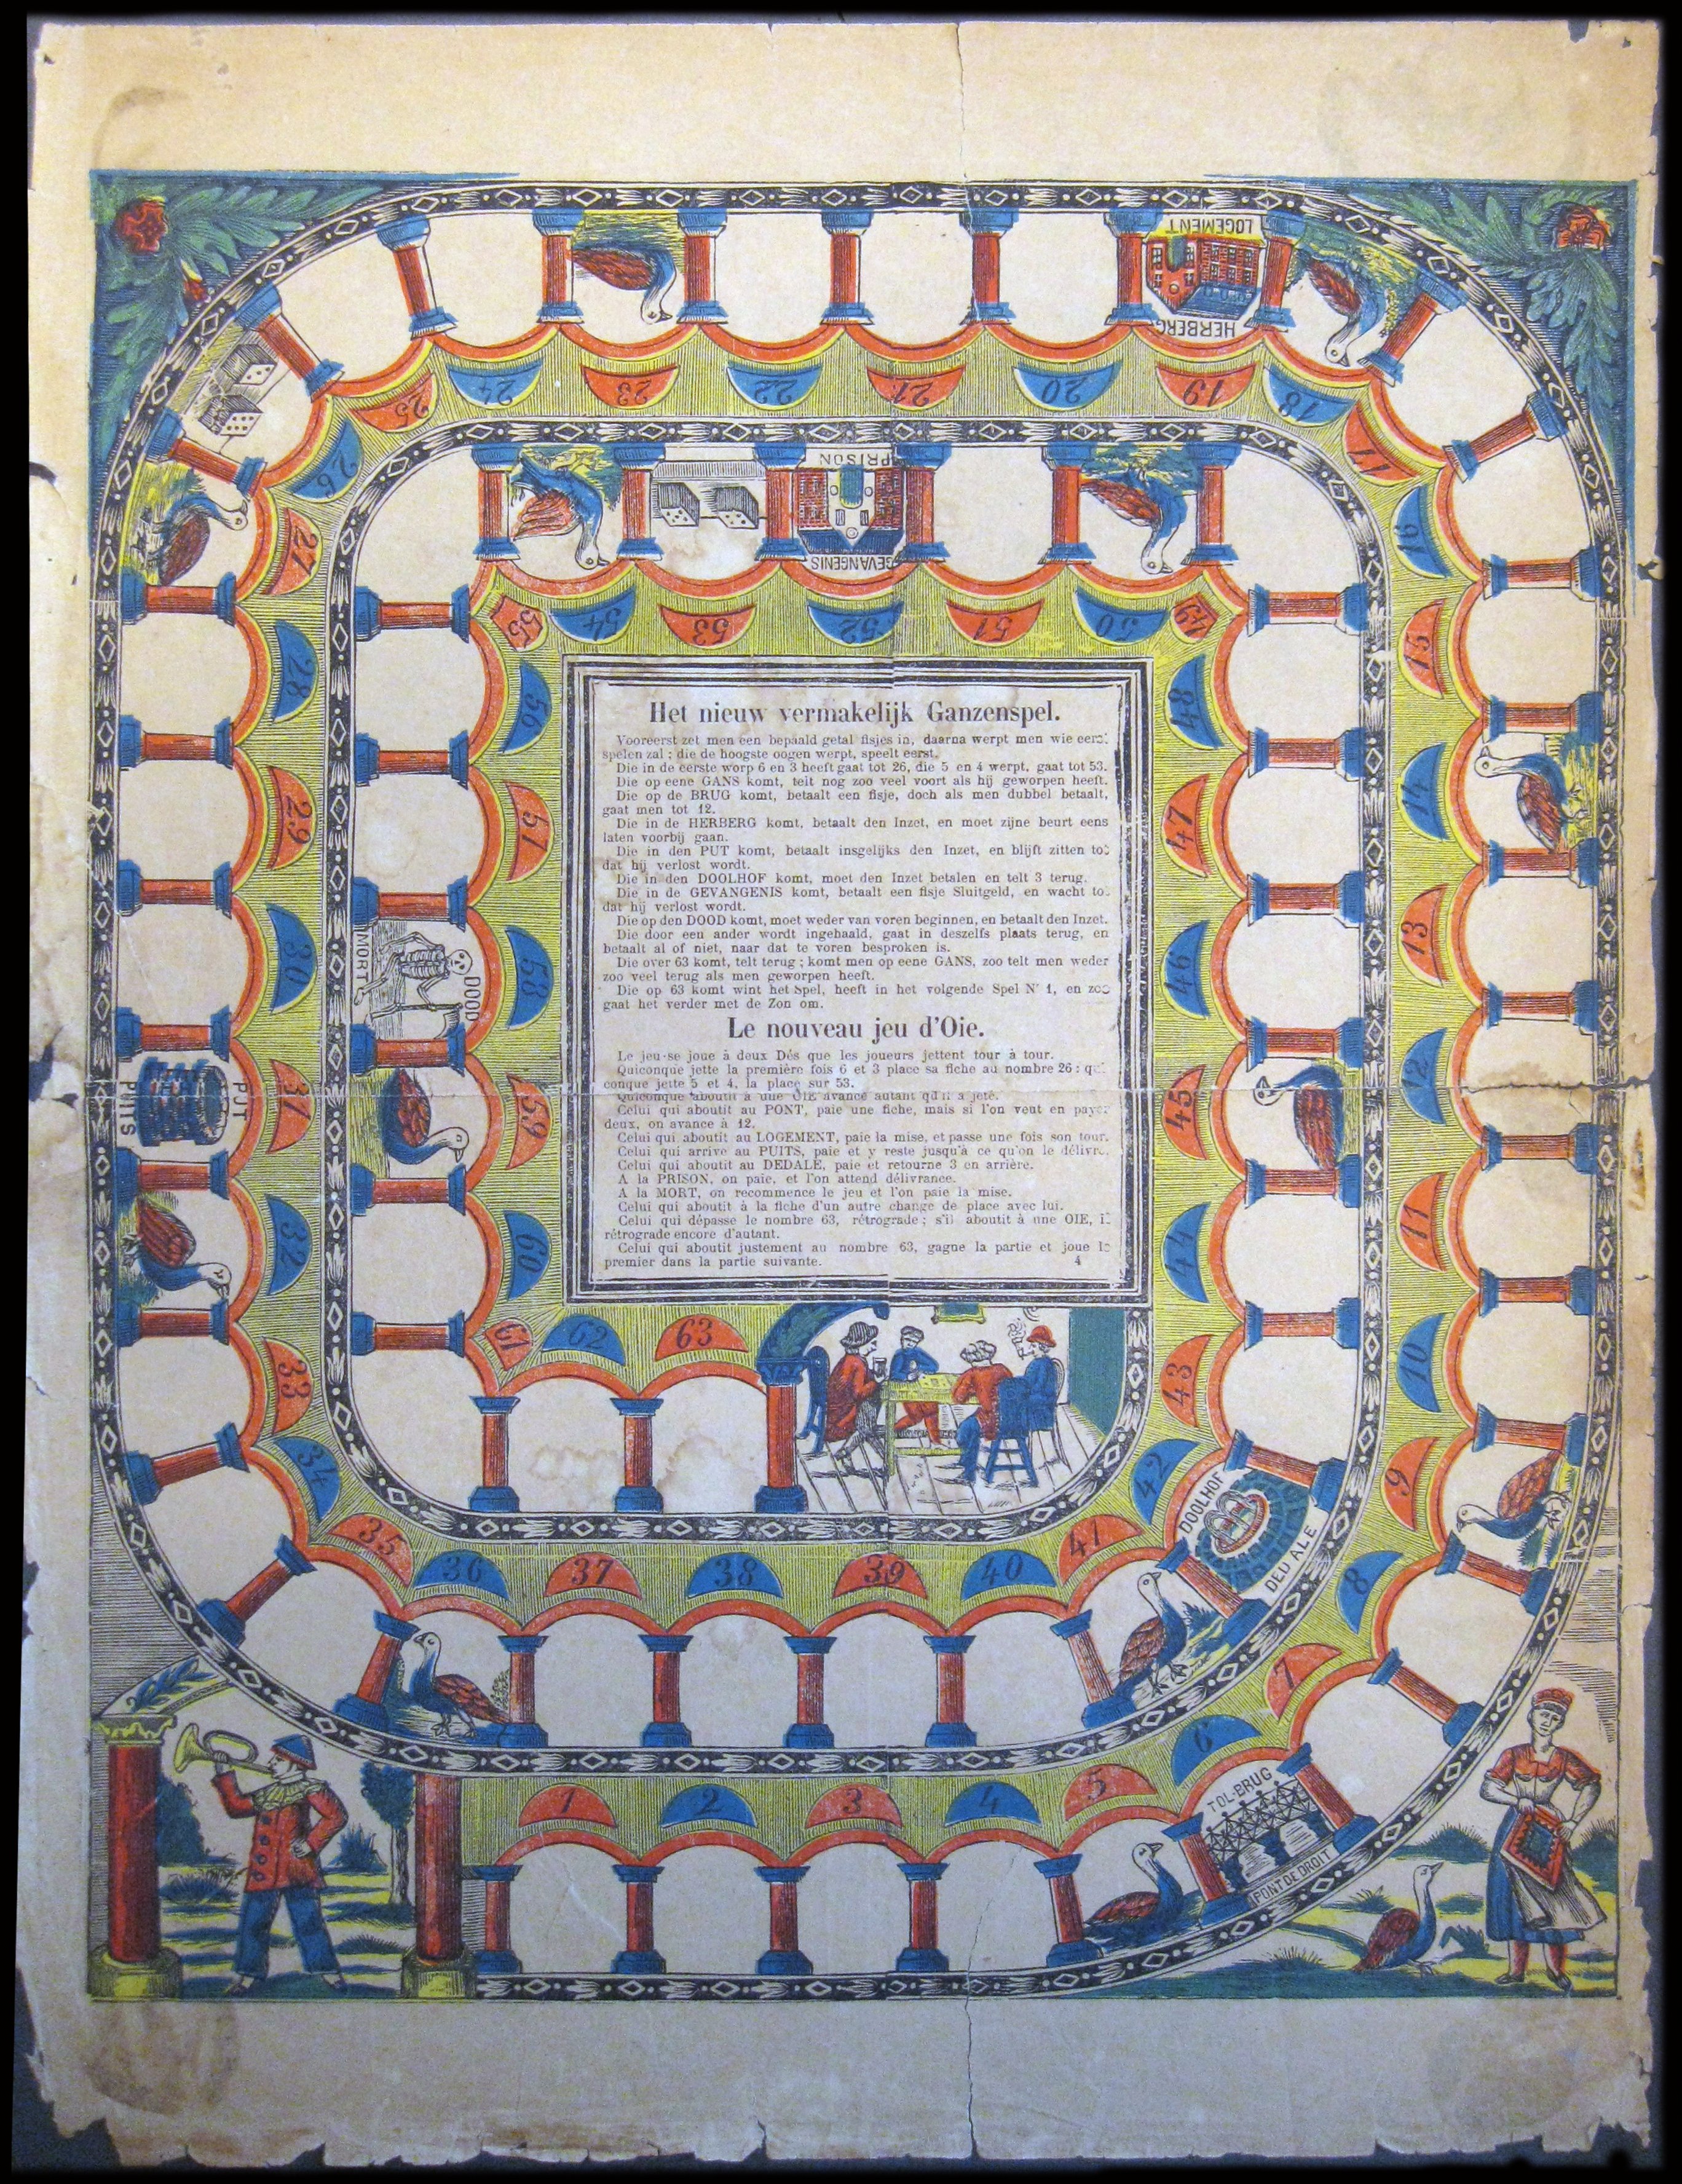 Het nieuw vermakelijk Ganzenspel.
Vooreerst zet men een bepaald getal fisjes in, daarna werpt men wie eerst
spelen zal ; die de hoogste oogen werpt, speelt eerst.
Die in de eerste worp 6 en 3 heeft gaat tot 26, die 5 en 4 werpt, gaat tot 53.
Die op eene GANS komt, telt nog zoo veel voort als hij geworpen heeft.
Die op de BRUG komt, betaalt een fisje, doch als men dubbel betaalt,
gaat men tot 12.
Die in de HERBERG komt, betaalt den Inzet, en moet zijne beurt eens
laten voorbij gaan.
Die in den PUT komt, betaalt insgelijks den Inzet, en blijft zitten tot
dat hij verlost wordt.
Die in den DOOLHOF komt, moet den Inzet betalen en telt 3 terug.
Die in de GEVANGENIS komt, betaalt een fisje Sluitgeld, en wacht tot
dat hij verlost wordt.
Die op den DOOD komt, moet weder van voren beginnen, en betaalt den Inzet.
Die door een ander wordt ingehaald, gaat in deszelfs plaats terug, en
betaalt al of niet, naar dat te voren besproken is.
Die over 63 komt, telt terug ; komt men op eene GANS, zoo telt men weder
zoo veel terug als men geworpen heeft.
Die op 63 komt wint het Spel, heeft in het volgende Spel N° 1, en zoo
gaat het verder met de Zon om.
Le nouveau jeu d'Oie.
Le jeu se joue à deux Dés que les joueurs jettent tour à tour.
Quiconque jette la première fois 6 et 3 place sa fiche au nombre 26 : qui
conque jette 5 et 4, la place sur 53.
Quiconque aboutit à une OIE avance autant qu'il a jeté.
Celui qui aboutit au PONT, paie une fiche, mais si l'on veut en payer
deux, on avance à 12.
Celui qui aboutit au LOGEMENT, paie la mise, et passe une fois son tour.
Celui qui arrive au PUITS, paie et y reste jusqu'à ce qu'on le délivre.
Celui qui aboutit au DEDALE, paie et retourne 3 en arrière.
A la PRISON, on paie, et l'on attend délivrance.
A la MORT, on recommence le jeu et l'on paie la mise.
Celui qui aboutit à la fiche d'un autre change de place avec lui.
Celui qui dépasse le nombre 63, rétrograde ; s'il aboutit à une OIE, il
rétrograde encore d'autant.
Celui qui aboutit justement au nombre 63, gagne la partie et joue le
premier dans la partie suivante.
4
1
2
3
4
5
6
TOL-BRUG
PONT DE DROIT
7
8
9
10
11
12
13
14
15
16
17
18
19
HERBERG
LOGEMENT
20
21
22
23
24
25
26
27
28
29
30
31
PUT
PUITS
32
33
34
35
36
37
38
39
40
41
42
DOOLHOF
DEDALE
43
44
45
46
47
48
49
50
51
52
GEVANGENIS
PRISON
53
54
55
56
57
58
DOOD
MORT
59
60
61
62
63